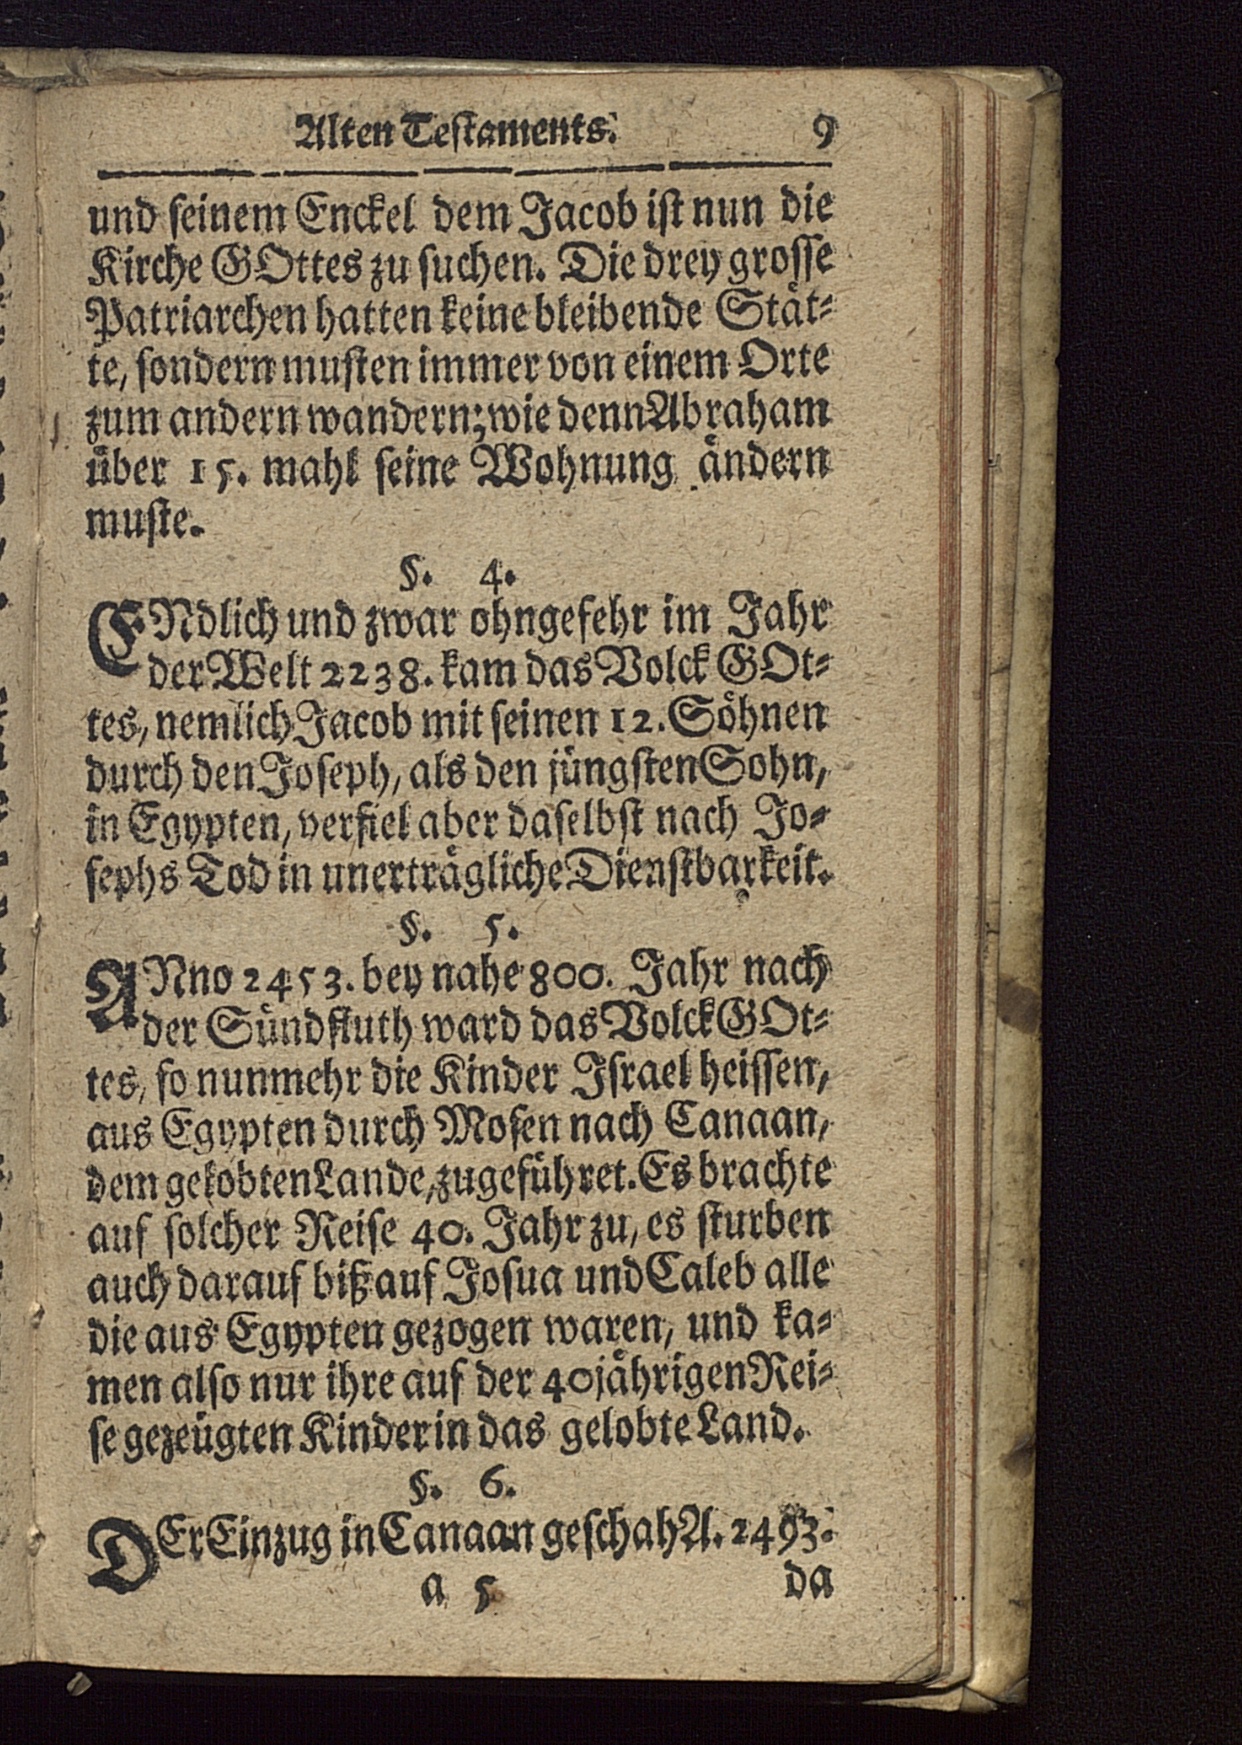 Alten Testaments. 9
und seinem Enckel dem Jacob ist nun die
Kirche GOttes zu suchen. Die drey grosse
Patriarchen hatten keine bleibende Stät-
te, sondern musten immer von einem Orte
zum andern wandern; wie denn Abraham
über 15. mahl seine Wohnung ändern
muste.
§. 4.
ENdlich und zwar ohngefehr im Jahr
der Welt 2238. kam das Volck GOt-
tes, nemlich Jacob mit seinen 12. Söhnen
durch den Joseph, als den jüngsten Sohn,
in Egypten, verfiel aber daselbst nach Jo-
sephs Tod in unerträgliche Dienstbarkeit.
§. 5.
ANno 2453. bey nahe 800. Jahr nach
der Sündfluth ward das Volck GOt-
tes, so nunmehr die Kinder Israel heissen,
aus Egypten durch Mosen nach Canaan,
dem gelobten Lande, zugeführet. Es brachte
auf solcher Reise 40. Jahr zu, es sturben
auch darauf biß auf Josua und Caleb alle
die aus Egypten gezogen waren, und ka-
men also nur ihre auf der 40jährigen Rei-
se gezeugten Kinder in das gelobte Land.
§. 6.
DEr Einzug in Canaan geschah A. 2493.
a 5 da